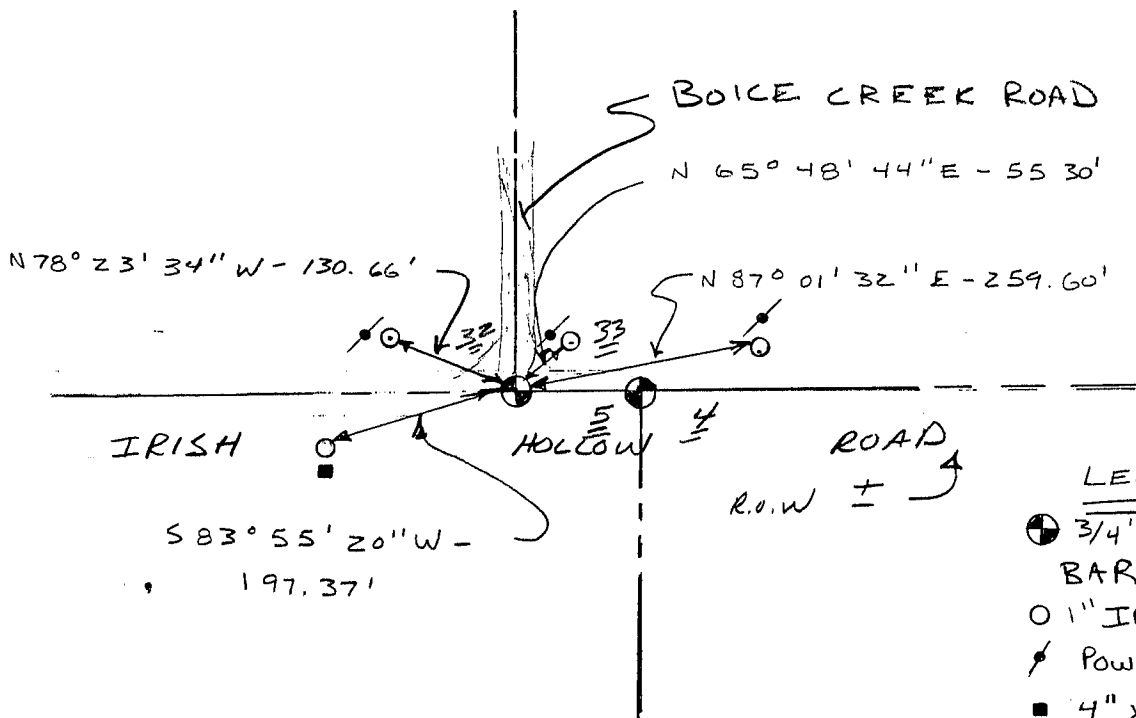 BOICE CREEK ROAD
N 65° 48' 44" E - 55 30'
N 78° 23' 34" W - 130.66'
N 87° 01' 32" E - 259.60'
32
33
5
4
IRISH HOLLOW ROAD
R.O.W ±
S 83° 55' 20" W -
197.37'
LE
3/4'
BAR
1" I
POW
4" x